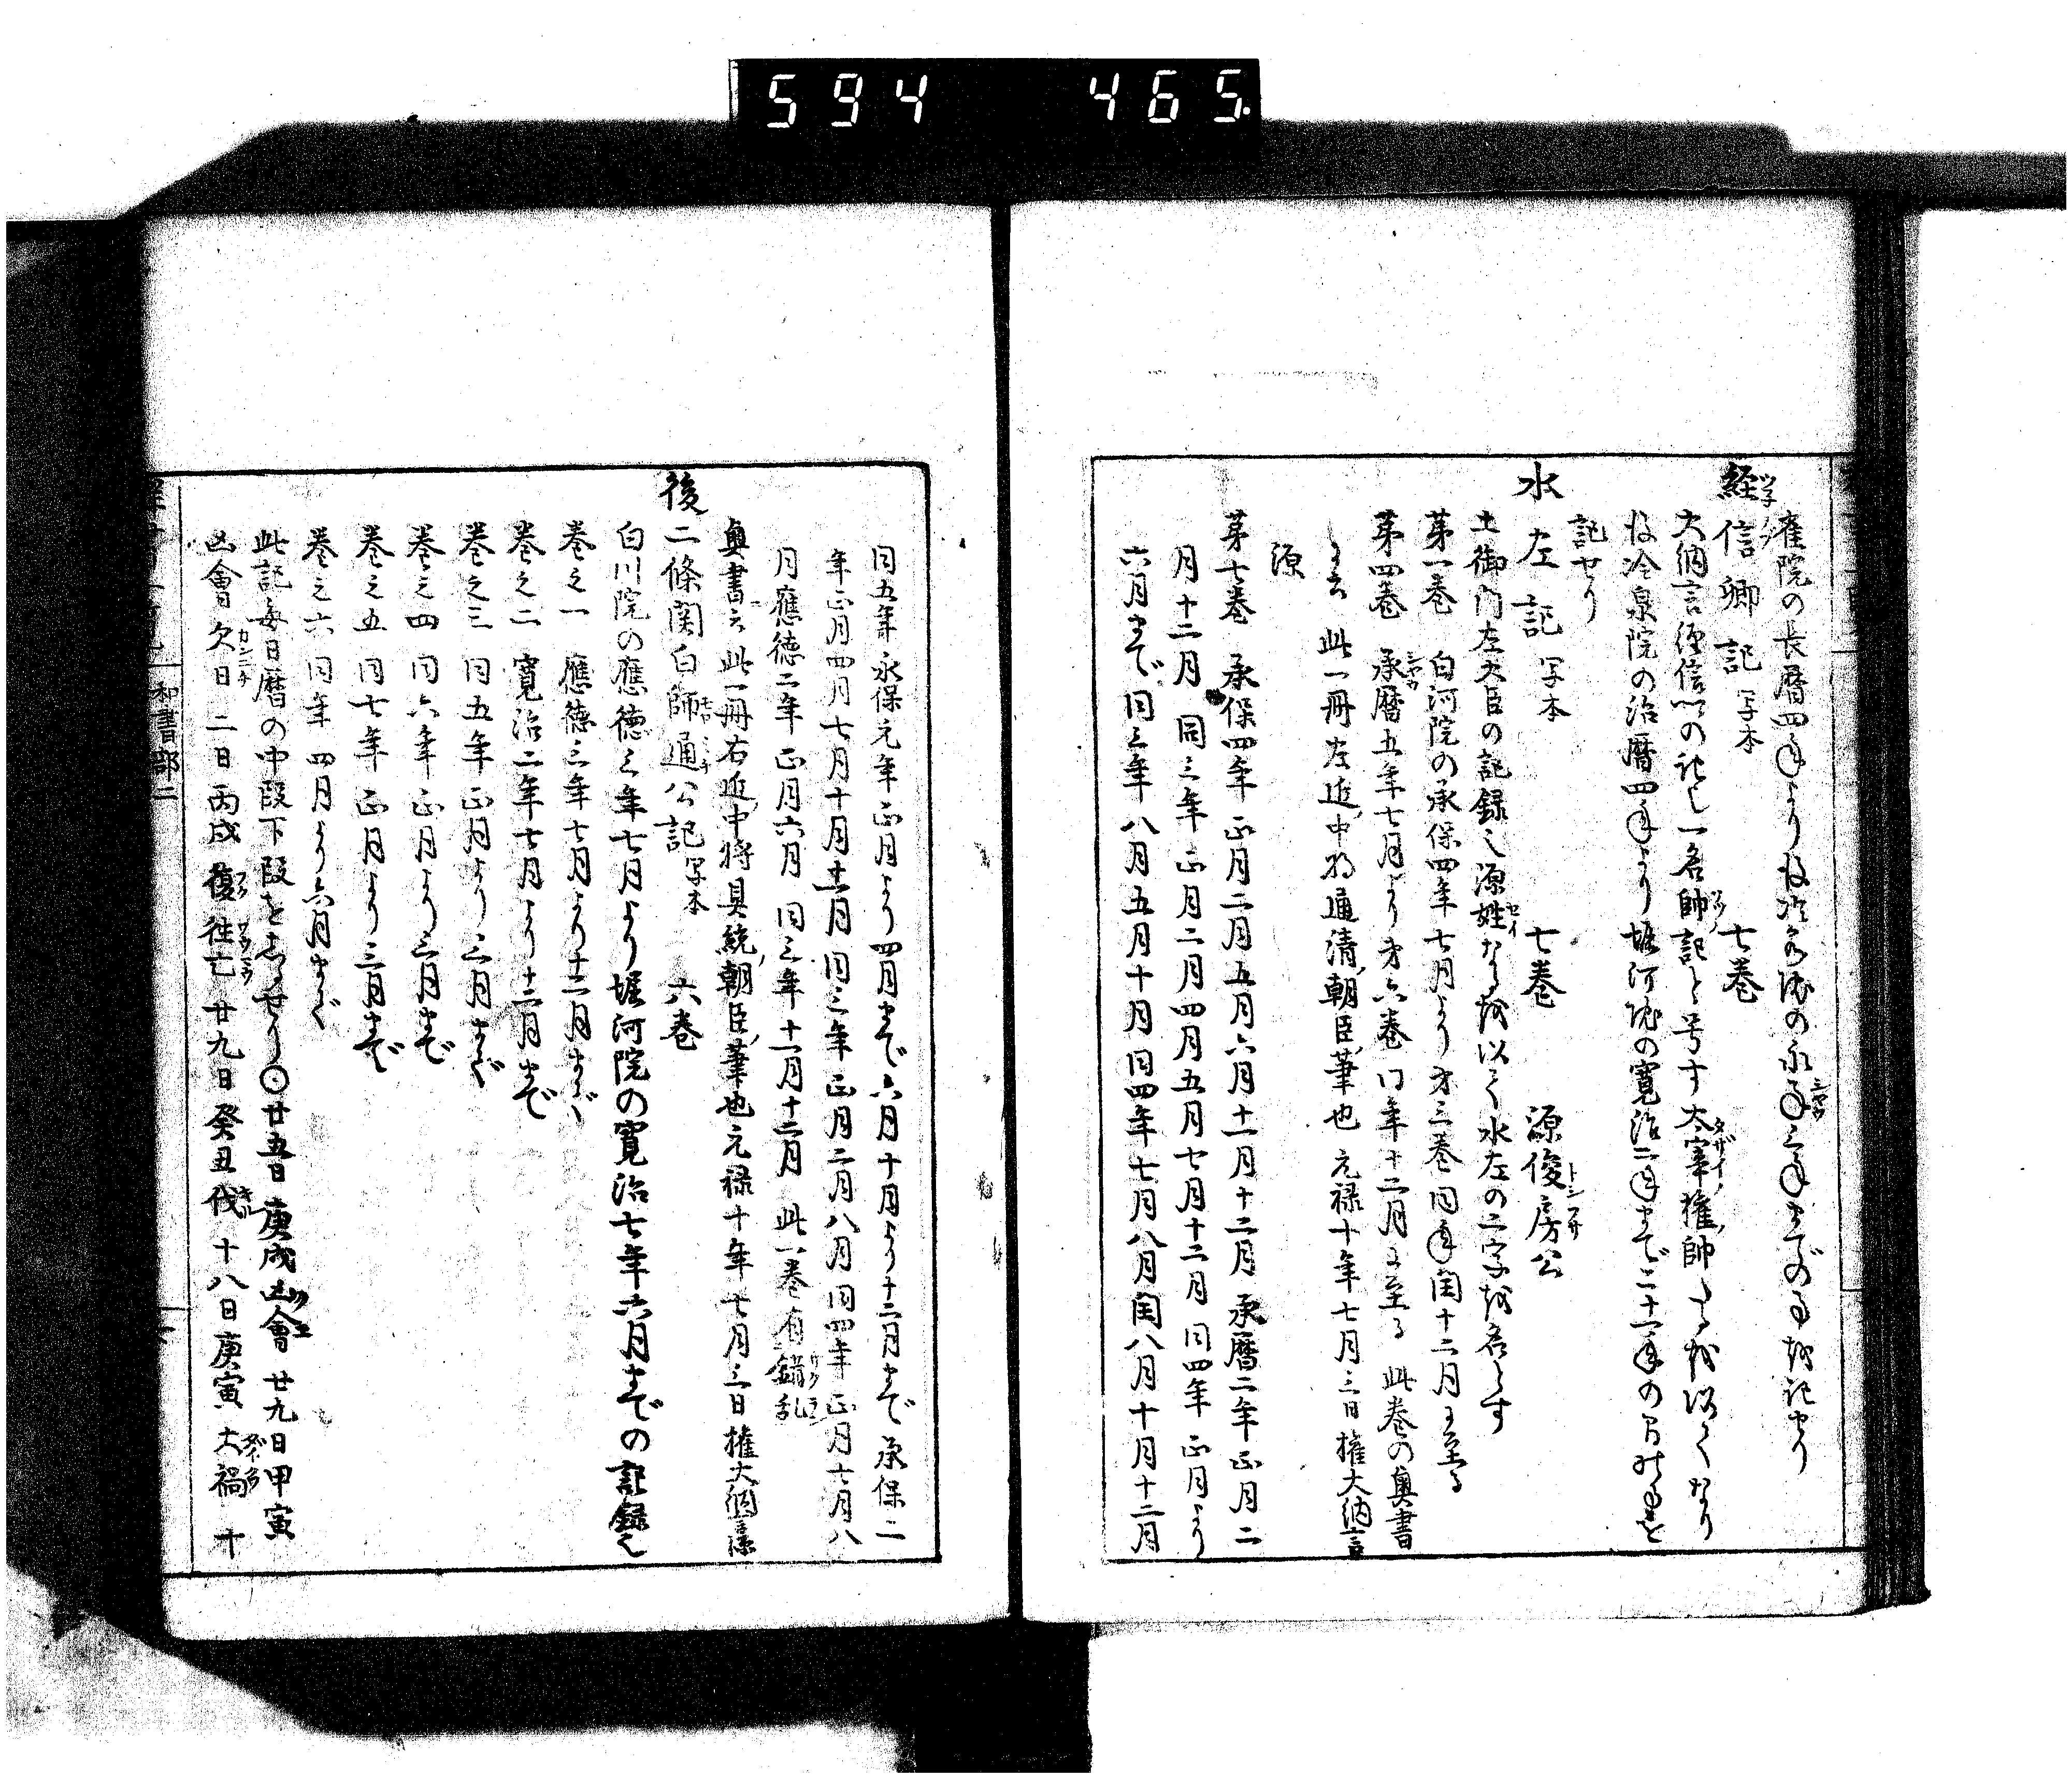 594 465.
雀院の長暦四年より後冷泉院の永承三年までの事を記せり
経信卿記 写本 七巻
大納言経信の記し一名帥記と号す太宰権帥たるを以てなり
後冷泉院の治暦四年より堀河院の寛治二年まで二十一年の
記せり
水左記 写本 七巻 源俊房公
土御門左大臣の記録也源姓なるを以て水左の二字を名とす
第一巻 白河院の承保四年七月より第三巻 同年閏十二月に至る
第四巻 承暦五年七月より第六巻 同年十二月に至る 此巻の奥書
に云 此一冊左近中将通清朝臣筆也 元禄十年七月三日権大納言
源
第七巻 承保四年正月二月五月六月十一月十二月 承暦二年正月二
月十二月 同三年正月二月四月五月七月十二月 同四年正月より
六月まで 同三年八月五月十月 同四年七月八月閏八月十月十二月
同五年永保元年正月より四月まで六月十月より十二月まで 承保二
年正月四月七月十月十二月 同三年正月二月八月同四年正月七月八
月應徳二年正月六月 同三年十一月十二月 此一巻有錯乱
奥書云 此一冊右近中将具統朝臣筆也元禄十年七月三日権大納言源
後二條関白師通公記 写本 六巻
白川院の應徳三年七月より堀河院の寛治七年六月までの記録也
巻之一 應徳三年七月より十二月まで
巻之二 寛治二年七月より十二月まで
巻之三 同五年正月より三月まで
巻之四 同六年正月より三月まで
巻之五 同七年正月より三月まで
巻之六 同年四月より六月まで
此記毎日暦の中段下段をしるせり○廿五日庚戌凶會 廿九日甲寅
凶會欠日 二日丙戌 復 往亡 廿九日癸丑 伐 十八日庚寅 大禍 十
和書部二